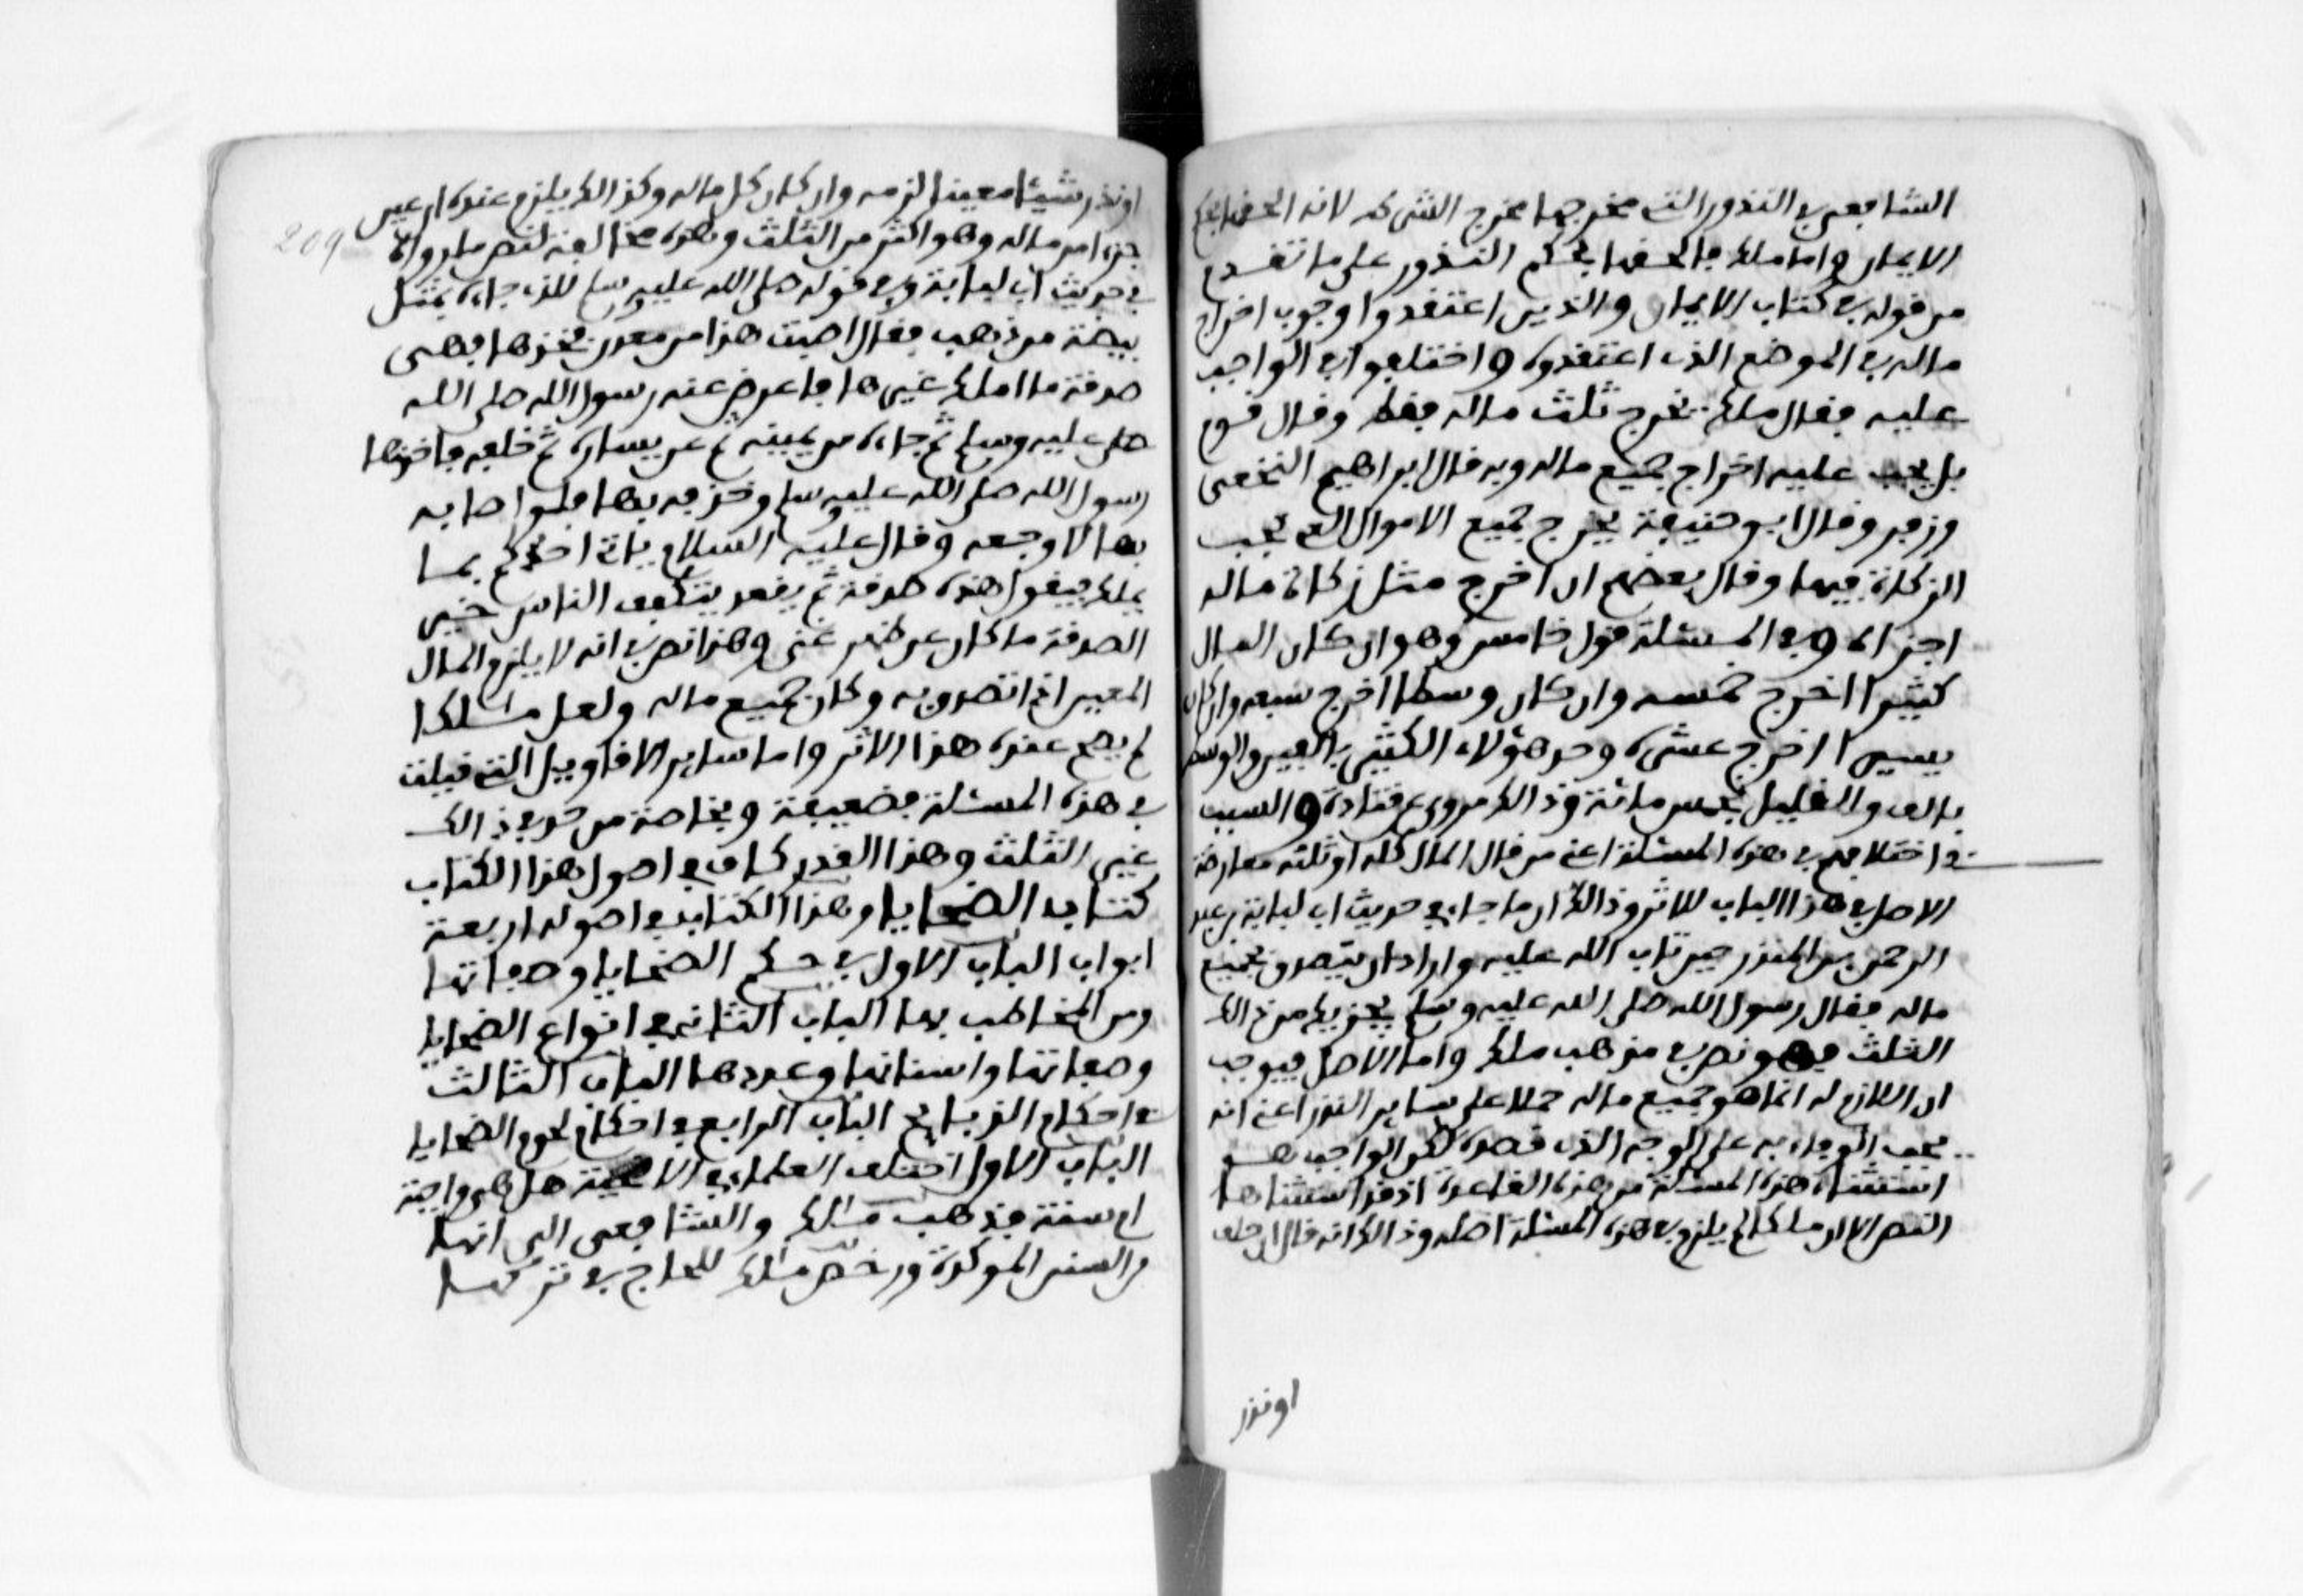 الشافعي في النذور التي مخرجها مخرج الشرط لانه الحقها بحكم
الايمان واما ملك فالحقها بحكم النذور على ما تقدم
من قوله في كتاب الايمان والذين اعتقدوا وجوب اخراج
ماله في الموضع الذي اعتقدوه واختلفوا في الواجب
عليه فقال ملك يخرج ثلث ماله فقط وقال قوم
بل يجب عليه اخراج جميع ماله وبه قال ابراهيم النخعي
وزفر وقال ابو حنيفة يخرج جميع الاموال التي تجب
الزكاة فيها وقال بعضهم ان اخرج مثل زكاة ماله
اجزاه وفي المسئلة قول خامس وهو ان كان المال
كثيرا اخرج خمسه وان كان وسطا اخرج سبعه وان كان
يسيرا اخرج عشره وحد هؤلاء الكثير بالفين والوسط
بالف والقليل بخمس مائة وذالك مروي عن قتادة والسبب
في اختلافهم في هذه المسئلة اعني من قال المال كله او ثلثه معارضة
الاصل في هذا الباب للاثر وذالك ان ما جاء في حديث ابي لبابة بن عبد
الرحمن بن المنذر حين تاب الله عليه واراد ان يتصدق بجميع
ماله فقال رسول الله صلى الله عليه وسلم يجزيك من ذالك
الثلث فهو نص في مذهب ملك واما الاصل فيوجب
ان اللازم له انما هو جميع ماله حملا على ساير النذر اعني انه
يجب الوفاء به على الوجه الذي قصده لكن الواجب هو
استثناء هذه المسئلة من هذه القاعدة اذ قد استثناها
النص الا ان ملكا لم يلزم في هذه المسئلة اصله وذالك انه قال ان حلف
او نذر
209
او نذر شيئا معينا لزمه وان كان كل ماله وكذالك يلزم عنده ان عين
جزءا من ماله وهو اكثر من الثلث وهذه مخالفة لنص ما رواه
في حديث ابي لبابة وفي قوله صلى الله عليه وسلم للذي جاءه بمثل
بيضة من ذهب فقال اصبت هذا من معدن فخذها فهي
صدقة ما املك غيرها فاعرض عنه رسول الله صلى الله
صلى عليه وسلم ثم جاءه من يمينه ثم عن يساره ثم خلفه فاخذها
رسول الله صلى الله عليه وسلم وحذفه بها فلو اصابه
بها لاوجعه وقال عليه السلام ياتي احدكم بما
يملك فيقول هذه صدقة ثم يقعد يتكفف الناس خير
الصدقة ما كان عن ظهر غنى وهذا نص في انه لا يلزم المال
المعين اذا تصدق به وكان جميع ماله ولعل مالكا
لم يصح عنده هذا الاثر واما ساير الاقاويل التي قيلت
في هذه المسئلة فضعيفة وبخاصة من حد في ذالك
غير الثلث وهذا القدر كاف في اصول هذا الكتاب
كتاب الضحايا وهذا الكتاب في اصوله اربعة
ابواب الباب الاول في حكم الضحايا وصفاتها
ومن المخاطب بها الباب الثاني في انواع الضحايا
وصفاتها واسنانها وعددها الباب الثالث
في احكام الذبايح الباب الرابع في احكام لحوم الضحايا
الباب الاول اختلف العلماء في الاضحية هل هي واجبة
ام سنة فذهب مالك والشافعي الى انها
من السنن الموكدة ورخص ملك للحاج في تركها